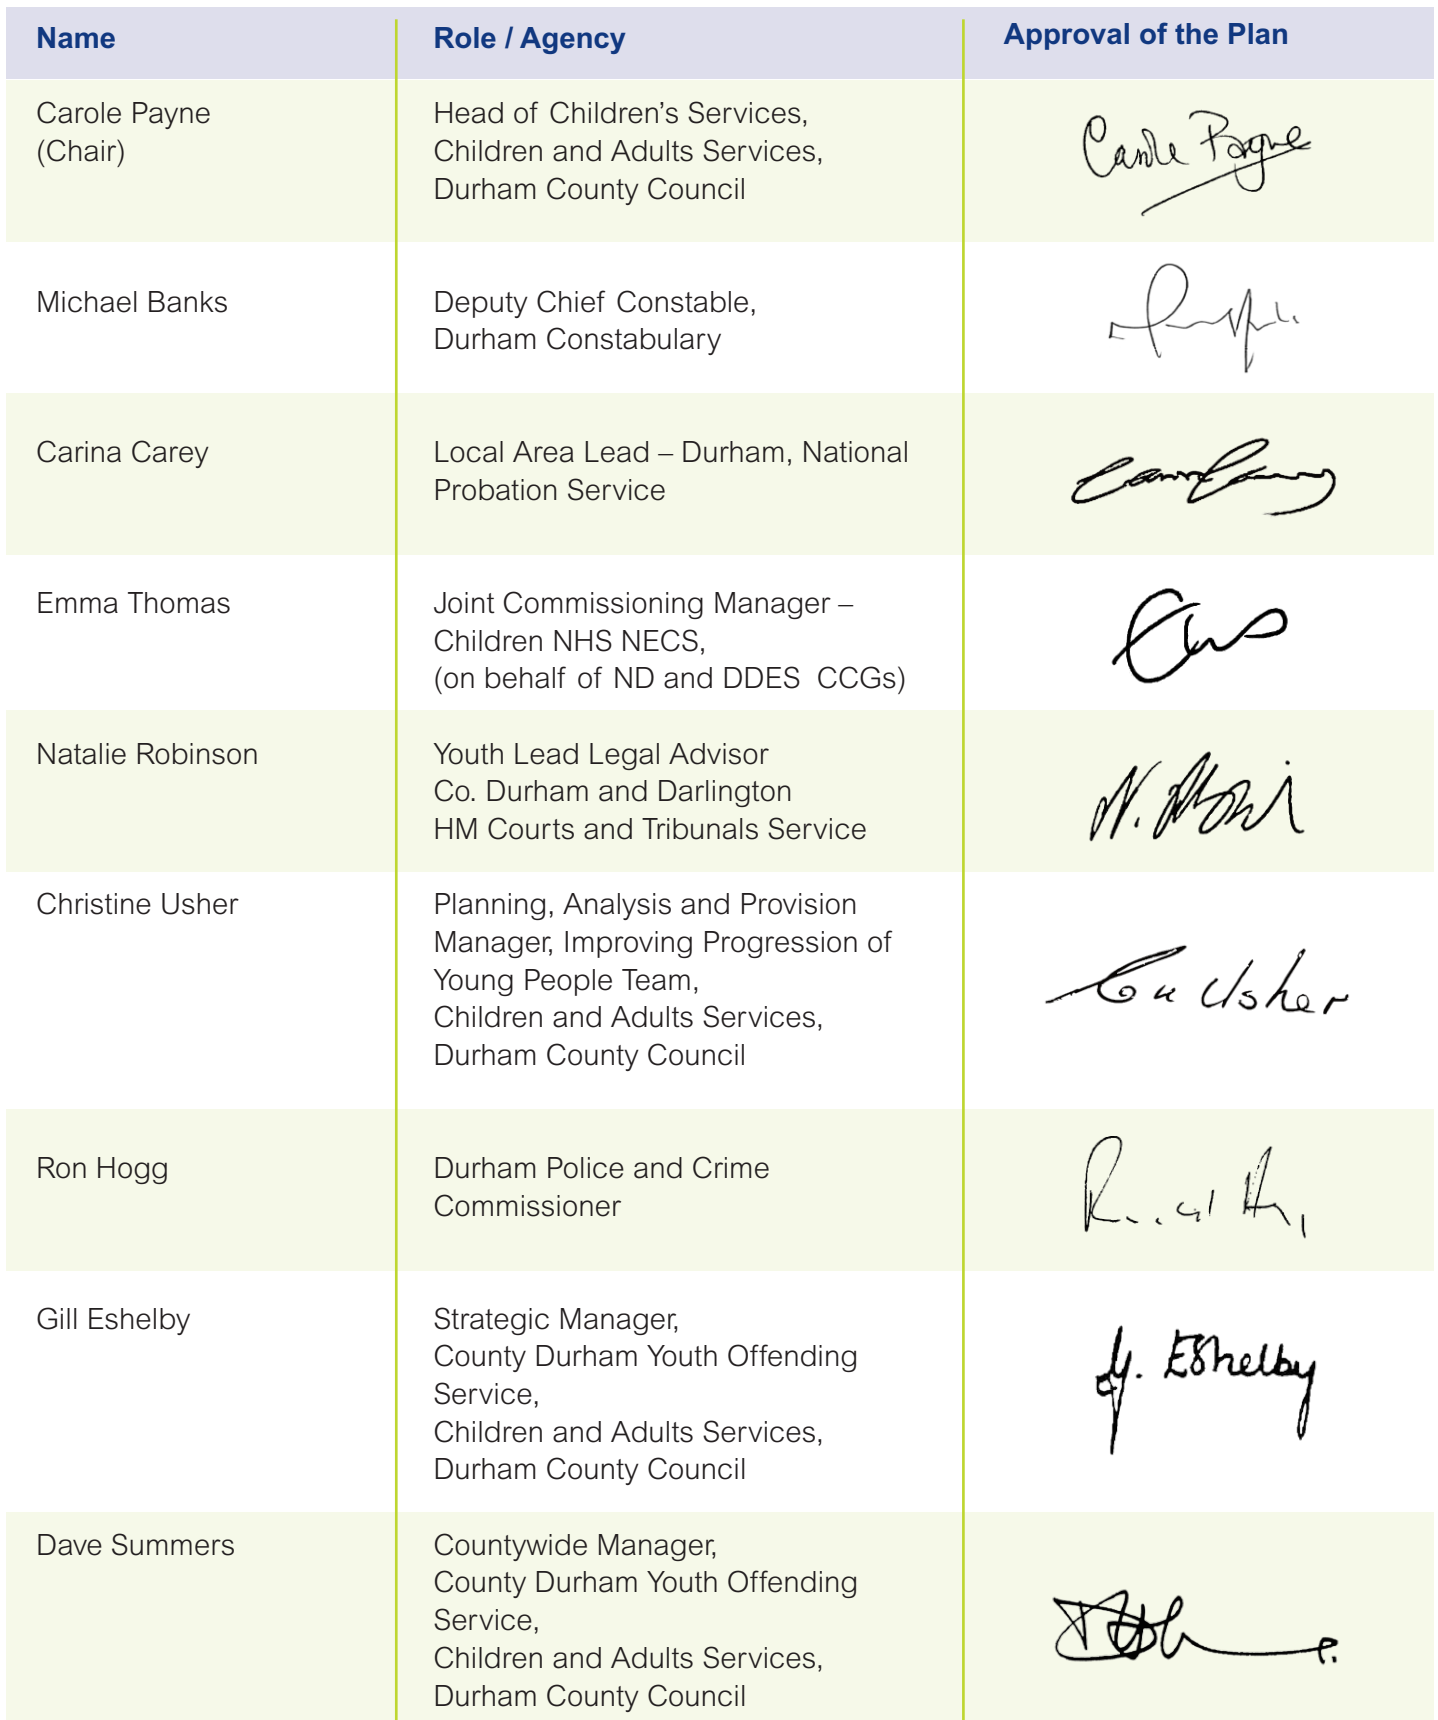 Name Role / Agency Approval of the Plan
Carole Payne
(Chair)
Head of Children’s Services,
Children and Adults Services,
Durham County Council
Carole Payne
Michael Banks
Deputy Chief Constable,
Durham Constabulary
Carina Carey
Local Area Lead – Durham, National
Probation Service
Emma Thomas
Joint Commissioning Manager –
Children NHS NECS,
(on behalf of ND and DDES CCGs)
Natalie Robinson
Youth Lead Legal Advisor
Co. Durham and Darlington
HM Courts and Tribunals Service
N.
Christine Usher
Planning, Analysis and Provision
Manager, Improving Progression of
Young People Team,
Children and Adults Services,
Durham County Council
Usher
Ron Hogg
Durham Police and Crime
Commissioner
Gill Eshelby
Strategic Manager,
County Durham Youth Offending
Service,
Children and Adults Services,
Durham County Council
G. Eshelby
Dave Summers
Countywide Manager,
County Durham Youth Offending
Service,
Children and Adults Services,
Durham County Council